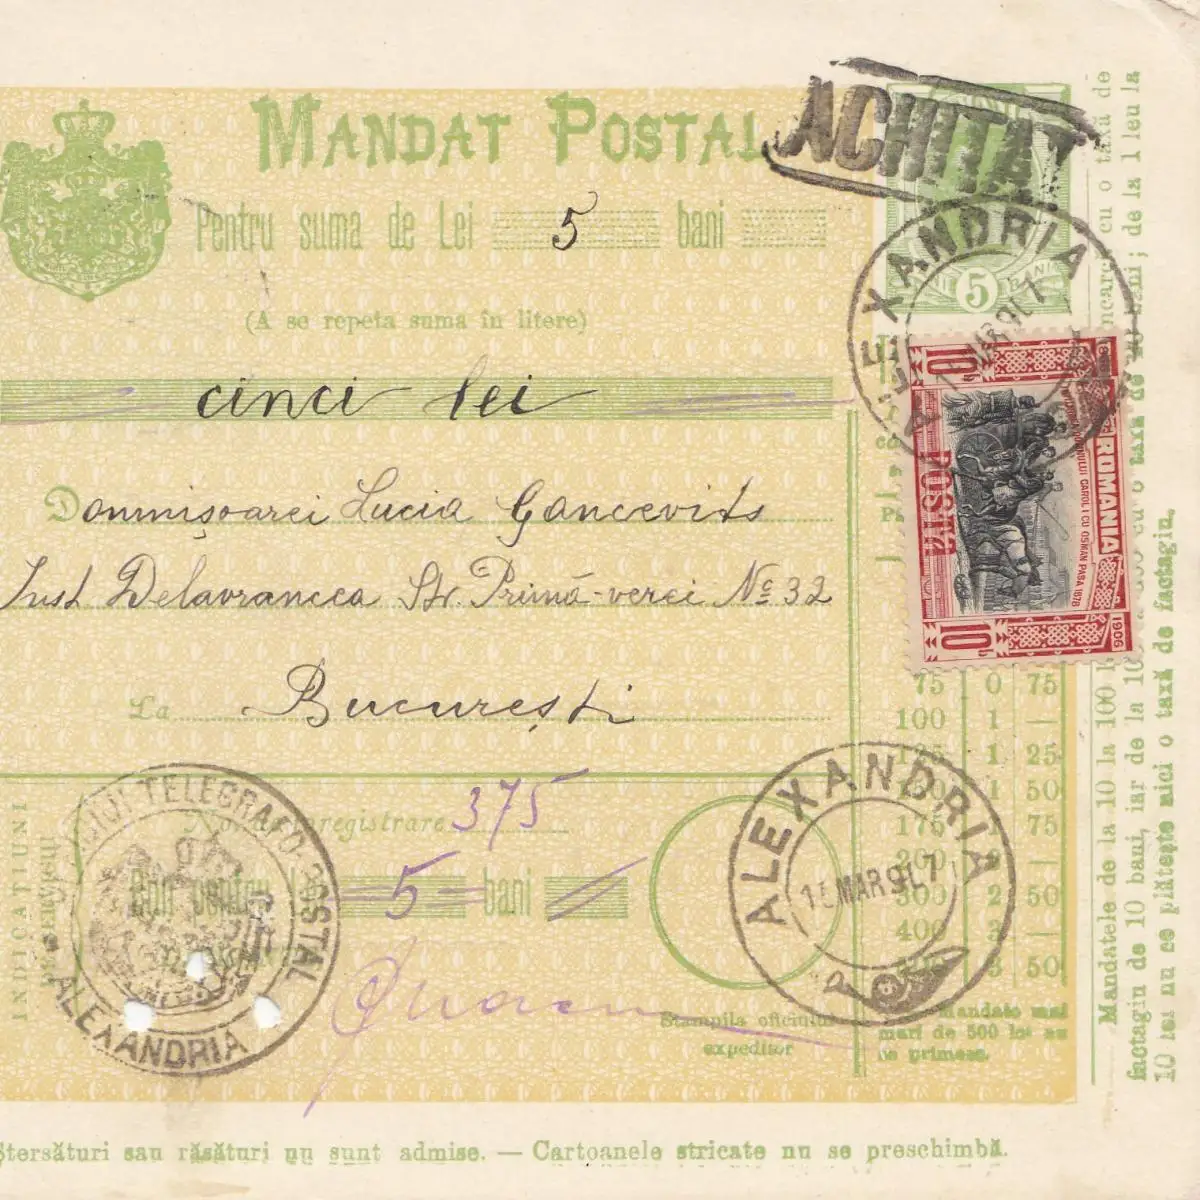 MANDAT POSTAL
ACHITAT
Pentru suma de Lei 5 bani
5 BANI
(A se repeta suma în litere)
cinci lei
ALEXANDRIA
MAR 907
Domnișoarei Lucia Gancevits
Delavrancea Str. Primă-verei No 32
La București
10 10 b
ROMANIA
POSTA
CAROL I CU OSMAN PASA 1878
1906
75 0 75
100 1 —
125 1 25
150 1 50
175 1 75
300 2 50
400 3 —
3 50
ALEXANDRIA
15 MAR 907
TELEGRAFO-POSTAL
ALEXANDRIA
INDICATIUNI
No. de înregistrare 375
Bon pentru lei 5 bani
Stampila oficiului
expeditor
Mandate mai
mari de 500 lei nu
se primesc.
Mandatele de la 10 la 100
factagiu de 10 bani, iar de la
10 lei nu se plătește nici o taxă de factagiu.
Stersături sau răsături nu sunt admise. — Cartoanele stricate nu se preschimbă.